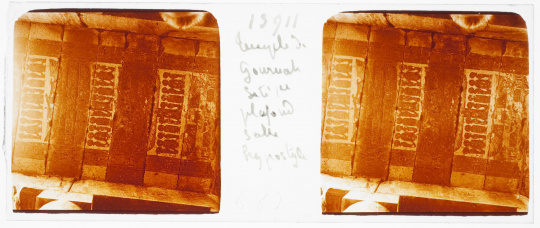 13911
Temple d.
Gournah
Seti
plafond
Salle
hypostyle